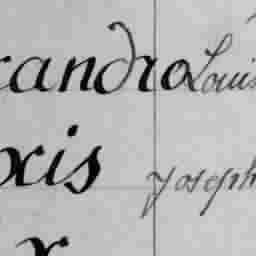 xandro Louis
xis Joseph
x